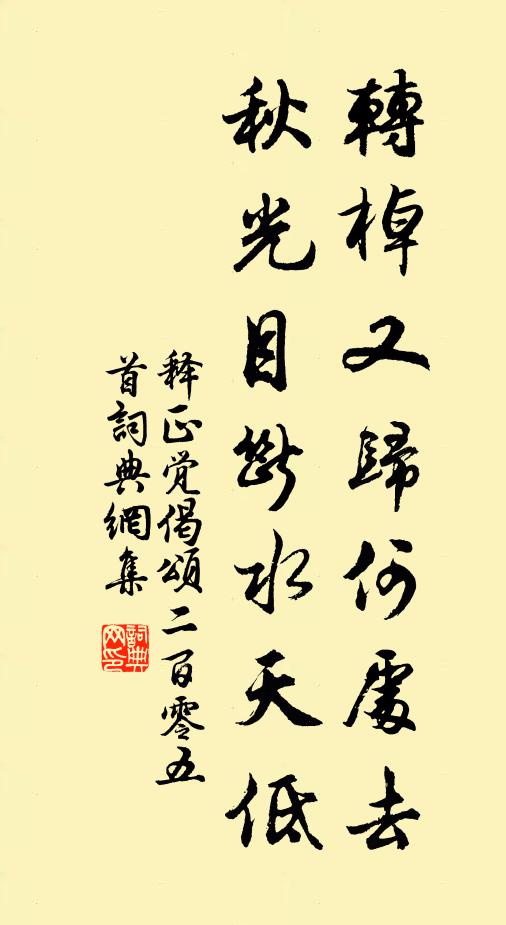 轉棹又歸何處去
秋光目斷水天低
释正觉偈頌二百零五
首詞典網集
詞典
网印